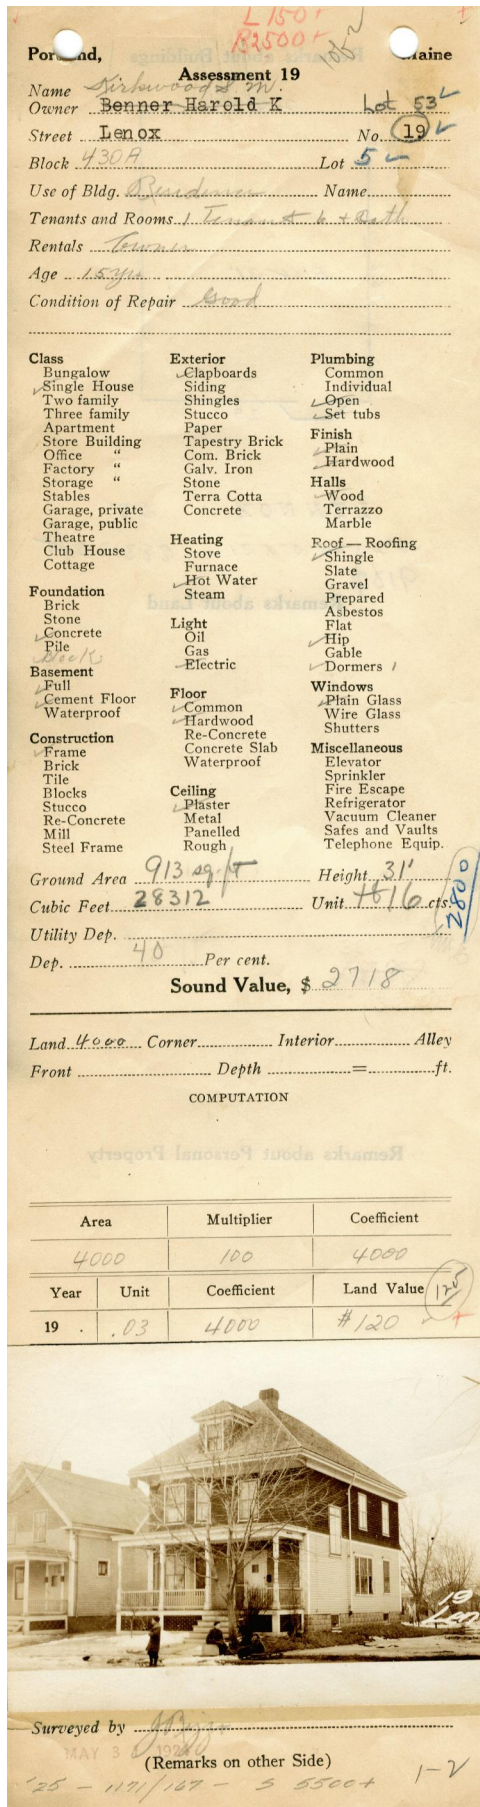 L 150+
B 2500+
Portland, Maine
Assessment 19
Name Kirkwood S. M.
Owner Benner Harold K Lot 53
Street Lenox No. 19
Block 430A Lot 5
Use of Bldg. Residence Name
Tenants and Rooms 1 Tenant 6 + Bath
Rentals Owner
Age 15 yrs
Condition of Repair Good
Class
Bungalow
Single House
Two family
Three family
Apartment
Store Building
Office "
Factory "
Storage "
Stables
Garage, private
Garage, public
Theatre
Club House
Cottage
Foundation
Brick
Stone
Concrete
Pile
Blocks
Basement
Full
Cement Floor
Waterproof
Construction
Frame
Brick
Tile
Blocks
Stucco
Re-Concrete
Mill
Steel Frame
Exterior
Clapboards
Siding
Shingles
Stucco
Paper
Tapestry Brick
Com. Brick
Galv. Iron
Stone
Terra Cotta
Concrete
Heating
Stove
Furnace
Hot Water
Steam
Light
Oil
Gas
Electric
Floor
Common
Hardwood
Re-Concrete
Concrete Slab
Waterproof
Ceiling
Plaster
Metal
Panelled
Rough
Plumbing
Common
Individual
Open
Set tubs
Finish
Plain
Hardwood
Halls
Wood
Terrazzo
Marble
Roof — Roofing
Shingle
Slate
Gravel
Prepared
Asbestos
Flat
Hip
Gable
Dormers 1
Windows
Plain Glass
Wire Glass
Shutters
Miscellaneous
Elevator
Sprinkler
Fire Escape
Refrigerator
Vacuum Cleaner
Safes and Vaults
Telephone Equip.
Ground Area 913 sq. ft Height 31'
Cubic Feet 28312 Unit 16 cts.
2800
Utility Dep.
Dep. 40 Per cent.
Sound Value, $ 2718
Land 4000 Corner Interior Alley
Front Depth = ft.
COMPUTATION
Area Multiplier Coefficient
4000 100 4000
Year Unit Coefficient Land Value 125
19 . .03 4000 #120
19
Len
Surveyed by
MAY 3
(Remarks on other Side)
'25 - 1171/167 - S 5500+
1-2